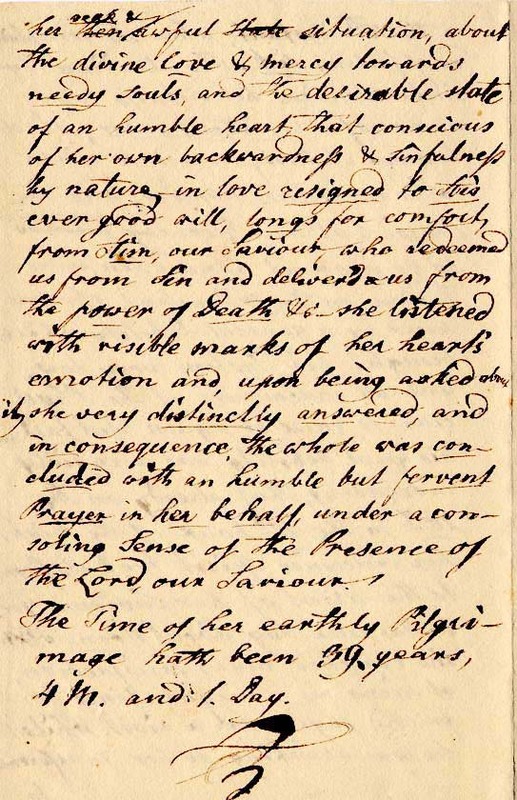 weak &
her then awful state situation, about
the divine love & mercy towards
needy souls, and the desirable state
of an humble heart, that conscious
of her own backwardness & sinfulness
by nature, in love resigned to His
ever good will, longs for comfort,
from Him, our Saviour, who redeemed
us from Sin and deliver'd us from
the power of Death &c - she listened
with visible marks of her heart's
emotion and, upon being asked about
it, she very distinctly answered, and
in consequence, the whole was con-
cluded with an humble but fervent
Prayer in her behalf, under a con-
soling Sense of the Presence of
the Lord, our Saviour.
The Time of her earthly Pilgri-
mage hath been 39 years,
4 M. and 1. Day.